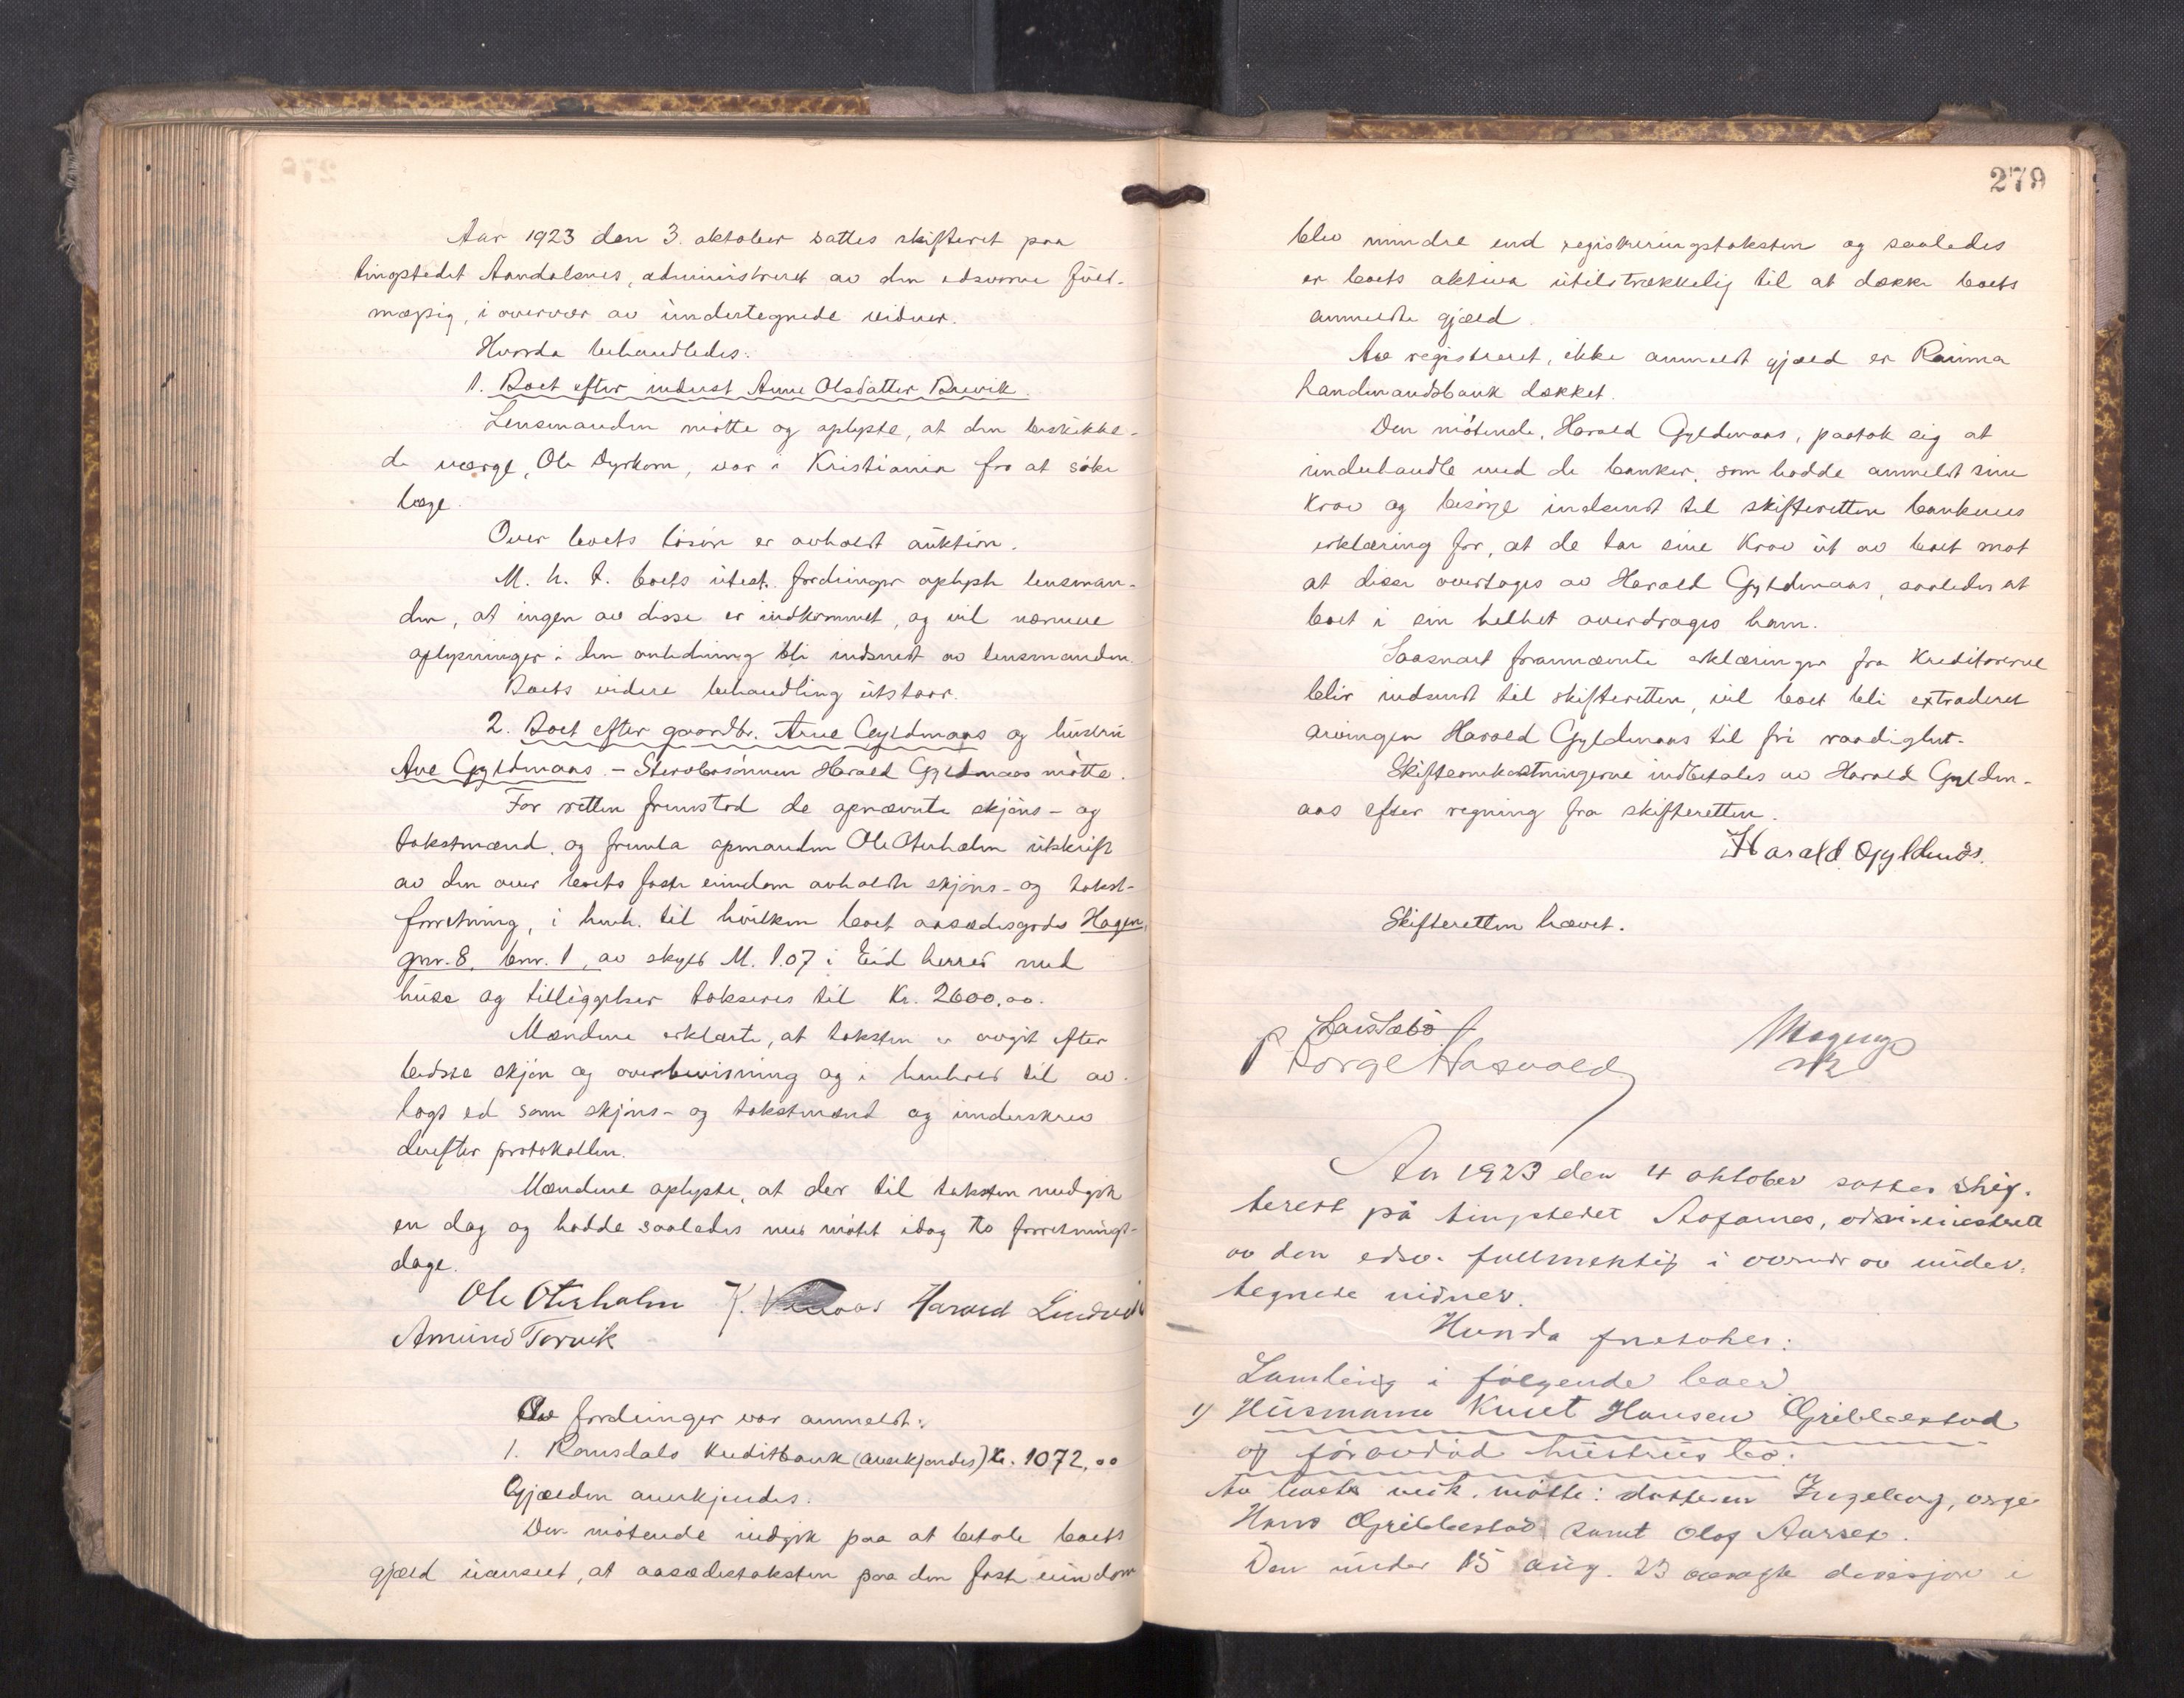 Aar 1923 den 3. oktober sattes skifteret paa
tingstedet Aandalsnes, administreret av den edsvorne fuld-
mægtig, i overvær av undertegnede vidner.
Hvorda behandledes:
1. Boet efter inderst Anne Olsdatter Brevik.
Lensmanden møtte og oplyste, at den beskikke-
de værge, Ole Dyrkorn, var i Kristiania for at søke
læge.
Over boets løsøre er avholdt auktion.
M. h. t. boets utest. fordringer oplyste lensman-
den, at ingen av disse er indkommet, og vil nærmere
oplysninger i den anledning bli indsendt av lensmanden.
Boets videre behandling utstaar.
2. Boet efter gaardbr. Arne Gyldenaas og hustru
Ane Gyldenaas. - Stervbosønnen Harald Gyldenaas møtte.
For retten fremstod de opnævnte skjøns- og
takstmænd, og fremla opmanden Ole Oterholm utskrift
av den over boets faste eiendom avholdte skjøns- og takst-
forretning, i henh. til hvilken boet aasædesgods Hagen,
gnr. 8, bnr. 1, av skyld M. 1.07 i Eid herred med
huse og tilliggelser takseres til Kr. 2600,00.
Mændene erklærte, at taksten er avgit efter
bedste skjøn og overbevisning og i henhold til av-
lagt ed som skjøns- og takstmænd og underskrev
derefter protokollen.
Mændene oplyste, at der til taksten medgik
en dag og hadde saaledes med møtet idag to forretnings-
dage.
Ole Oterholm K. Harald Lindvik
Amund Torvik
Av fordringer var anmeldt:
1. Romsdals Kreditbank (anerkjendes) Kr. 1072,00
Gjælden anerkjendes.
Den møtende indgik paa at betale boets
gjæld uanseet, at aasædestaksten paa den faste eiendom
279
blev mindre end registreringstaksten og saaledes
er boets aktiva utilstrækkelig til at dække boets
anmeldte gjæld.
Av registreret, ikke anmeldt gjæld er Rauma
Landmandsbank dækket.
Den møtende, Harald Gyldenaas, paatok sig at
underhandle med de banker, som hadde anmeldt sine
krav og besørge indsendt til skifteretten bankenes
erklæring for, at de tar sine krav ut av boet mot
at disse overtages av Harald Gyldenaas, saaledes at
boet i sin helhet overdrages ham.
Saasnart frannævnte erklæringer fra kreditorerne
blir indsendt til skifteretten, vil boet bli extraderet
arvingen Harald Gyldenaas til fri raadighet.
Skifteomkostningerne indbetales av Harald Gylden-
aas efter regning fra skifteretten.
Harald Gyldenås.
Skifteretten hævet.
Lars Sæbø
Børge Hasvold
Ar 1923 den 4 oktober sattes skif-
terett på tingstedet Aafarnes, administrett
av den edsv. fullmektig i overvær av under-
tegnede vidner.
Hvorda foretokes:
Samling i følgende boer
1) Husmann Knut Hansen Gribbestad
og foravdød hustrus bo:
Av boets vedk. møtte: datteren Ingeborg, verge
Hans Gribbestad samt Olaf Aarset.
Den under 15 aug. 23 i